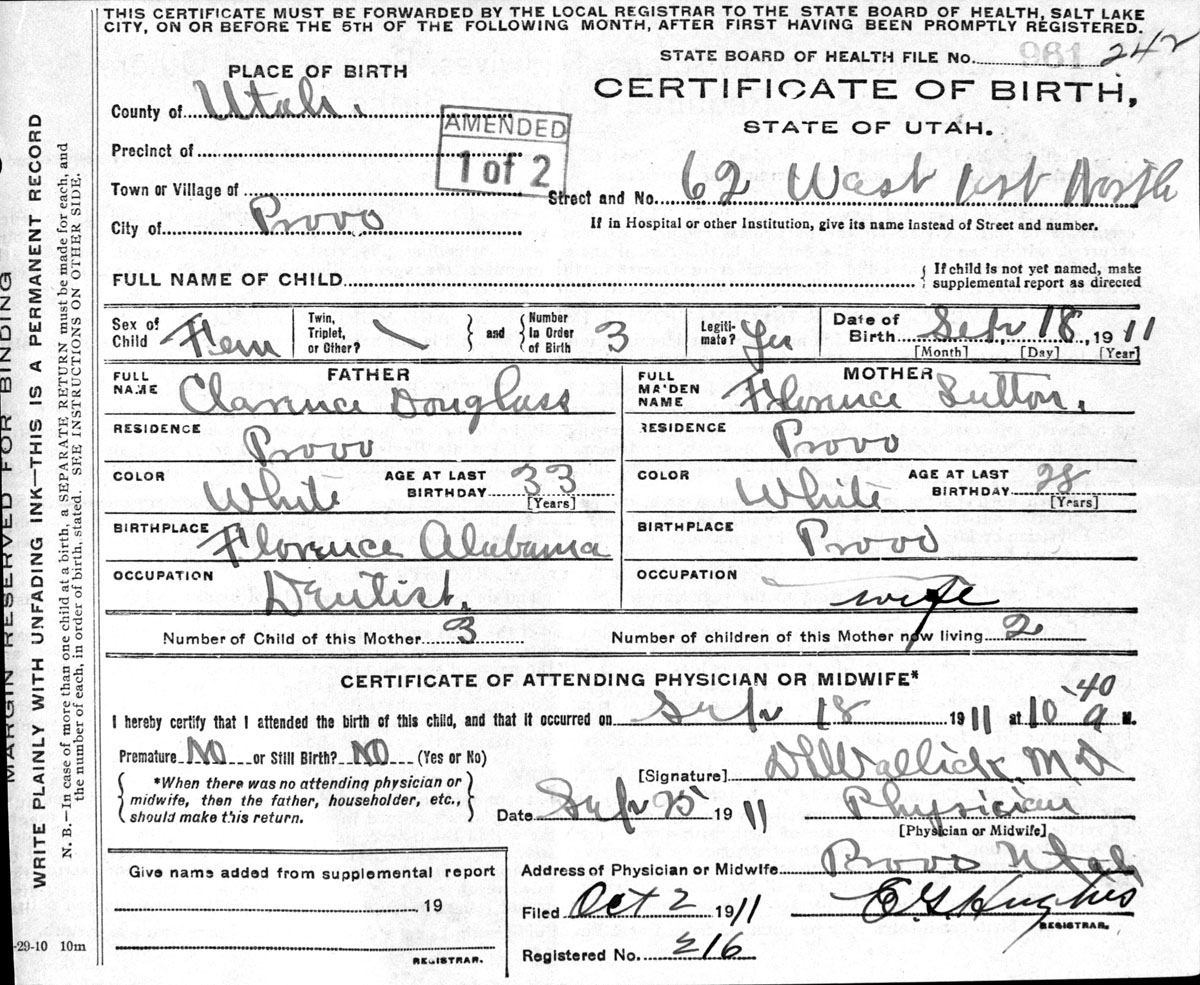 THIS CERTIFICATE MUST BE FORWARDED BY THE LOCAL REGISTRAR TO THE STATE BOARD OF HEALTH, SALT LAKE
CITY, ON OR BEFORE THE 5TH OF THE FOLLOWING MONTH, AFTER FIRST HAVING BEEN PROMPTLY REGISTERED.
STATE BOARD OF HEALTH FILE No. 961 242
PLACE OF BIRTH
CERTIFICATE OF BIRTH,
STATE OF UTAH.
County of Utah.
AMENDED
1 of 2
Precinct of
Town or Village of
Street and No. 62 West 1st North
City of Provo
If in Hospital or other Institution, give its name instead of Street and number.
FULL NAME OF CHILD { If child is not yet named, make
supplemental report as directed
Sex of Child Fem
Twin, Triplet, or Other? \
} and { Number In Order of Birth 3
Legiti-mate? Yes
Date of Birth Sep 18, 1911
[Month] [Day] [Year]
FATHER
FULL NAME Clarence Douglass
RESIDENCE Provo
COLOR White AGE AT LAST BIRTHDAY 33 [Years]
BIRTHPLACE Florence Alabama
OCCUPATION Dentist.
MOTHER
FULL MAIDEN NAME Florence Sutton.
RESIDENCE Provo
COLOR White AGE AT LAST BIRTHDAY 28 [Years]
BIRTHPLACE Provo
OCCUPATION wife
Number of Child of this Mother 3 Number of children of this Mother now living 2
CERTIFICATE OF ATTENDING PHYSICIAN OR MIDWIFE*
I hereby certify that I attended the birth of this child, and that it occurred on Sep 18 1911 at 10 40 a M.
Premature No or Still Birth? No (Yes or No)
*When there was no attending physician or
midwife, then the father, householder, etc.,
should make this return.
[Signature] Wallick, M D
Date Sep 25 1911 Physician
[Physician or Midwife]
Address of Physician or Midwife Provo Utah
Filed Oct 2 1911 E G Hughes
REGISTRAR.
Registered No. 216
Give name added from supplemental report
19
REGISTRAR.
-29-10 10m
MARGIN RESERVED FOR BINDING
WRITE PLAINLY WITH UNFADING INK—THIS IS A PERMANENT RECORD
N. B.—In case of more than one child at a birth, a SEPARATE RETURN must be made for each, and
the number of each, in order of birth, stated. SEE INSTRUCTIONS ON OTHER SIDE.